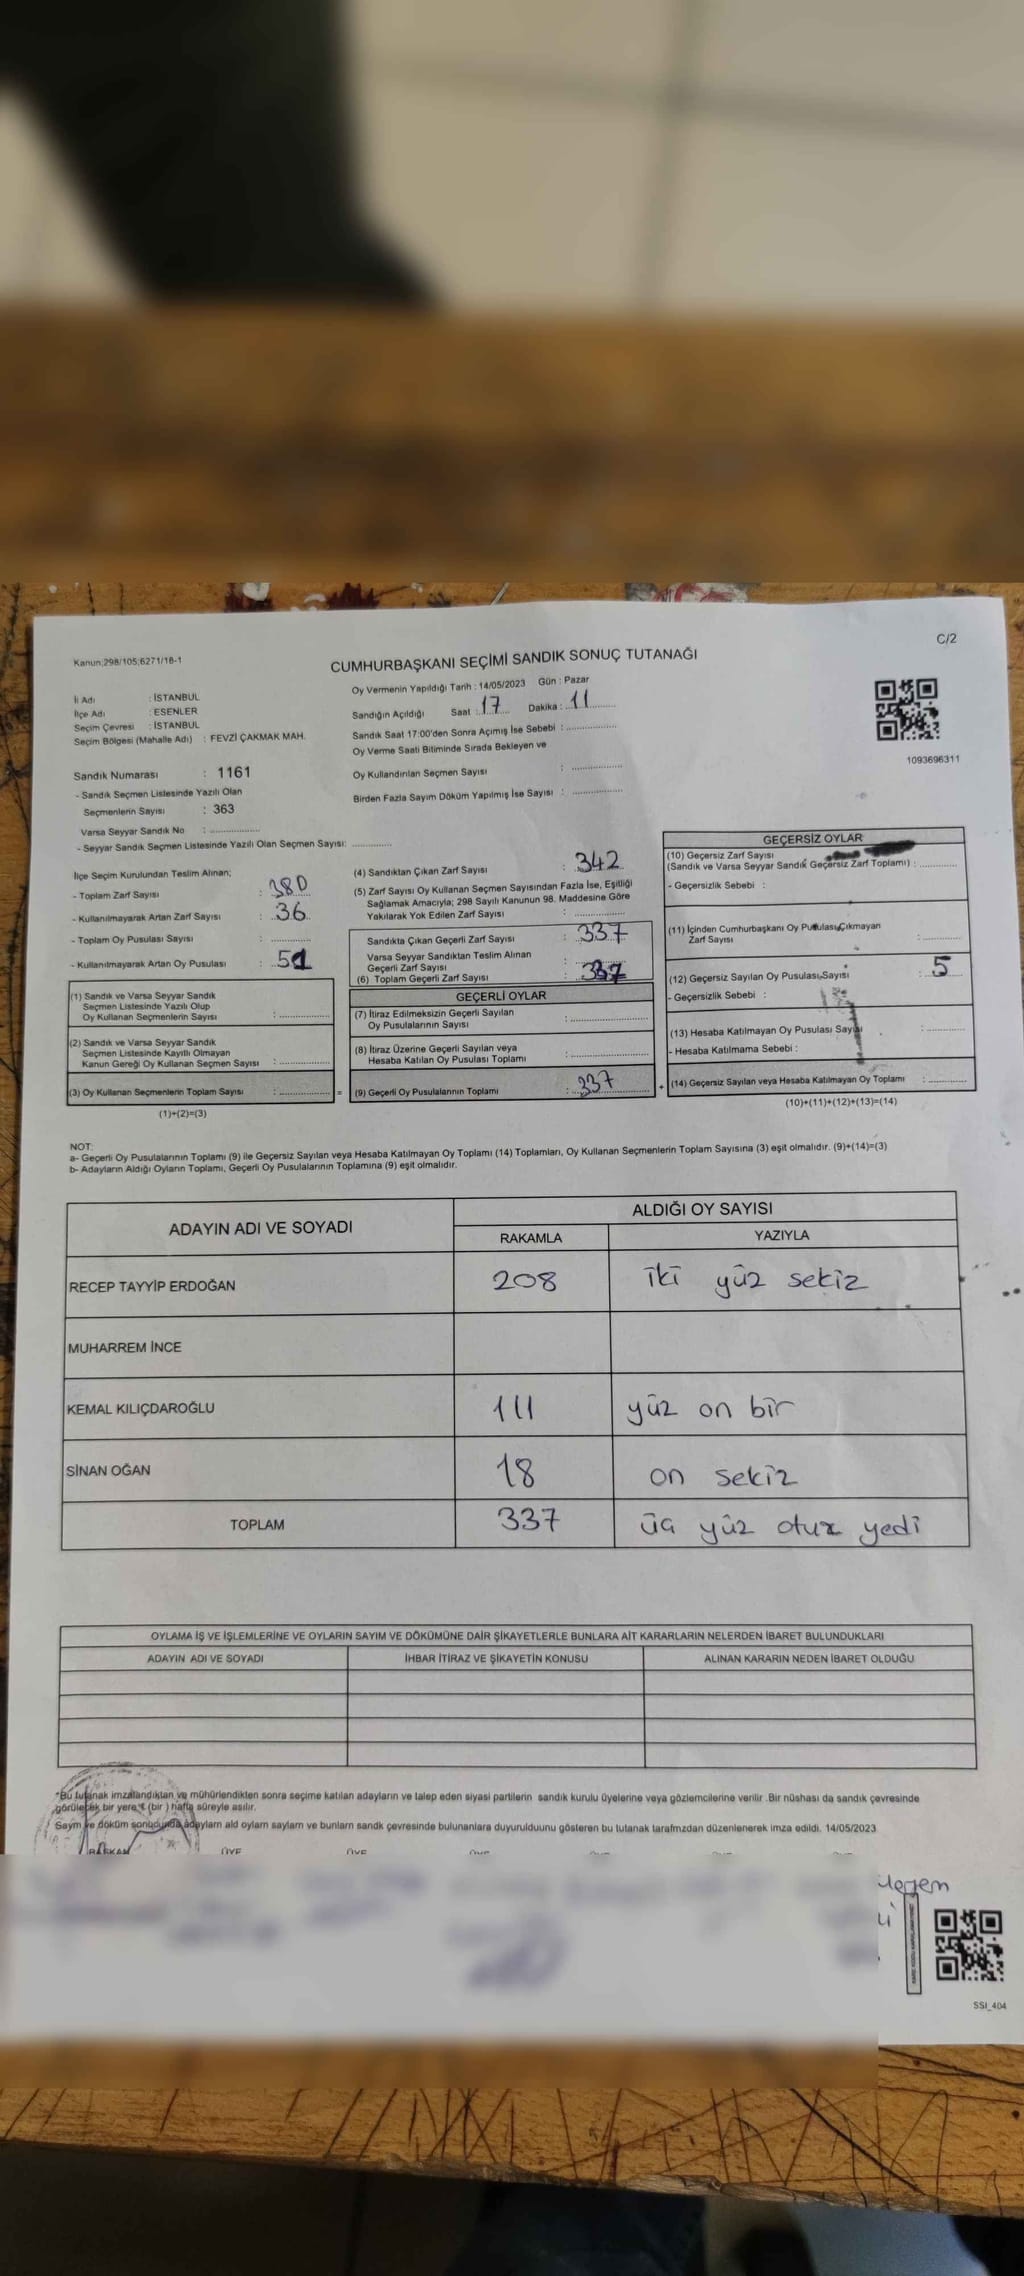 C/2
Kanun;298/105;6271/18-1
CUMHURBAŞKANI SEÇİMİ SANDIK SONUÇ TUTANAĞI
İli Adı : İSTANBUL
İlçe Adı : ESENLER
Seçim Çevresi : İSTANBUL
Seçim Bölgesi (Mahalle Adı) : FEVZİ ÇAKMAK MAH.
Oy Vermenin Yapıldığı Tarih : 14/05/2023 Gün : Pazar
Sandığın Açıldığı Saat : 17 Dakika : 11
Sandık Saat 17:00'den Sonra Açımış İse Sebebi :
Oy Verme Saati Bitiminde Sırada Bekleyen ve
Oy Kullandırılan Seçmen Sayısı :
Birden Fazla Sayım Döküm Yapılmış İse Sayısı :
1093696311
Sandık Numarası : 1161
- Sandık Seçmen Listesinde Yazılı Olan
Seçmenlerin Sayısı : 363
Varsa Seyyar Sandık No :
- Seyyar Sandık Seçmen Listesinde Yazılı Olan Seçmen Sayısı:
İlçe Seçim Kurulundan Teslim Alınan;
- Toplam Zarf Sayısı : 380
- Kullanılmayarak Artan Zarf Sayısı : 36
- Toplam Oy Pusulası Sayısı :
- Kullanılmayarak Artan Oy Pusulası : 51
(1) Sandık ve Varsa Seyyar Sandık
Seçmen Listesinde Yazılı Olup
Oy Kullanan Seçmenlerin Sayısı :
(2) Sandık ve Varsa Seyyar Sandık
Seçmen Listesinde Kayıtlı Olmayan
Kanun Gereği Oy Kullanan Seçmen Sayısı :
(3) Oy Kullanan Seçmenlerin Toplam Sayısı : =
(1)+(2)=(3)
(4) Sandıktan Çıkan Zarf Sayısı : 342
(5) Zarf Sayısı Oy Kullanan Seçmen Sayısından Fazla İse, Eşitliği
Sağlamak Amacıyla; 298 Sayılı Kanunun 98. Maddesine Göre
Yakılarak Yok Edilen Zarf Sayısı :
Sandıkta Çıkan Geçerli Zarf Sayısı : 337
Varsa Seyyar Sandıktan Teslim Alınan
Geçerli Zarf Sayısı :
(6) Toplam Geçerli Zarf Sayısı : 337
GEÇERLİ OYLAR
(7) İtiraz Edilmeksizin Geçerli Sayılan
Oy Pusulalarının Sayısı :
(8) İtiraz Üzerine Geçerli Sayılan veya
Hesaba Katılan Oy Pusulası Toplamı :
(9) Geçerli Oy Pusulalarının Toplamı : 337 +
GEÇERSİZ OYLAR
(10) Geçersiz Zarf Sayısı
(Sandık ve Varsa Seyyar Sandık Geçersiz Zarf Toplamı) :
- Geçersizlik Sebebi :
(11) İçinden Cumhurbaşkanı Oy Pusulası Çıkmayan
Zarf Sayısı :
(12) Geçersiz Sayılan Oy Pusulası Sayısı : 5
- Geçersizlik Sebebi :
(13) Hesaba Katılmayan Oy Pusulası Sayısı :
- Hesaba Katılmama Sebebi :
(14) Geçersiz Sayılan veya Hesaba Katılmayan Oy Toplamı :
(10)+(11)+(12)+(13)=(14)
NOT:
a- Geçerli Oy Pusulalarının Toplamı (9) ile Geçersiz Sayılan veya Hesaba Katılmayan Oy Toplamı (14) Toplamları, Oy Kullanan Seçmenlerin Toplam Sayısına (3) eşit olmalıdır. (9)+(14)=(3)
b- Adayların Aldığı Oyların Toplamı, Geçerli Oy Pusulalarının Toplamına (9) eşit olmalıdır.
ADAYIN ADI VE SOYADI ALDIĞI OY SAYISI
RAKAMLA YAZIYLA
RECEP TAYYİP ERDOĞAN 208 iki yüz sekiz
MUHARREM İNCE
KEMAL KILIÇDAROĞLU 111 yüz on bir
SİNAN OĞAN 18 on sekiz
TOPLAM 337 üç yüz otuz yedi
OYLAMA İŞ VE İŞLEMLERİNE VE OYLARIN SAYIM VE DÖKÜMÜNE DAİR ŞİKAYETLERLE BUNLARA AİT KARARLARIN NELERDEN İBARET BULUNDUKLARI
ADAYIN ADI VE SOYADI İHBAR İTİRAZ VE ŞİKAYETİN KONUSU ALINAN KARARIN NEDEN İBARET OLDUĞU
"Bu tutanak imzalandıktan ve mühürlendikten sonra seçime katılan adayların ve talep eden siyasi partilerin sandık kurulu üyelerine veya gözlemcilerine verilir .Bir nüshası da sandık çevresinde
görülecek bir yere 1 (bir ) hafta süreyle asılır.
Sayım ve döküm sonucunda adaylarn ald oylarn saylarn ve bunlarn sandk çevresinde bulunanlara duyurulduunu gösteren bu tutanak tarafmzdan düzenlenerek imza edildi. 14/05/2023
BAŞKAN ÜYE ÜYE
SSI_404